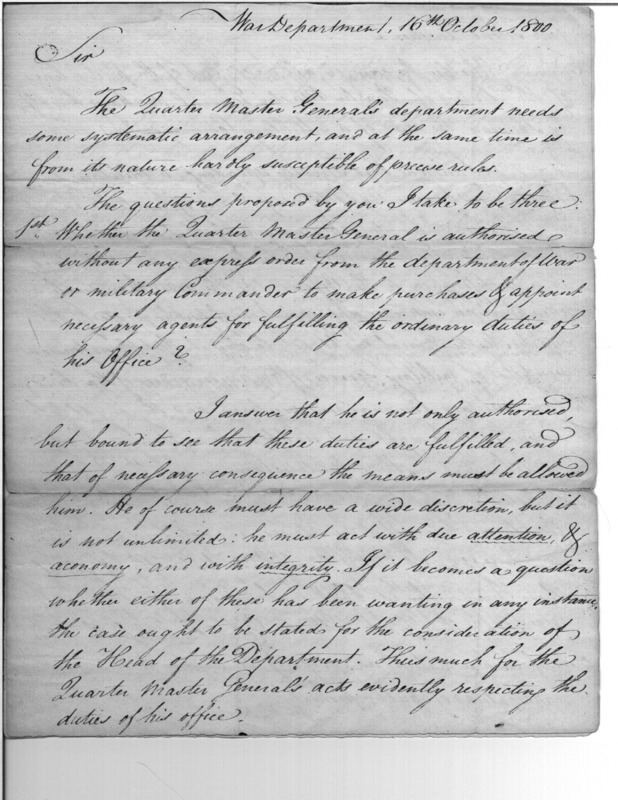 War Department, 16th October 1800
Sir
The Quarter Master General's department needs
some systematic arrangement, and at the same time is
from its nature hardly susceptible of precise rules.
The questions proposed by you I take to be three:
1st. Whether the Quarter Master General is authorised
without any express order from the department of War
or military Commander to make purchases & appoint
necessary agents for fulfilling the ordinary duties of
his Office?
I answer that he is not only authorised,
but bound to see that these duties are fulfilled, and
that of necessary consequence the means must be allowed
him. He of course must have a wide discretion, but it
is not unlimited: he must act with due attention, &
œconomy, and with integrity. If it becomes a question
whether either of these has been wanting in any instance,
the case ought to be stated for the consideration of
the Head of the Department. Thus much for the
Quarter Master General's acts evidently respecting the
duties of his office.